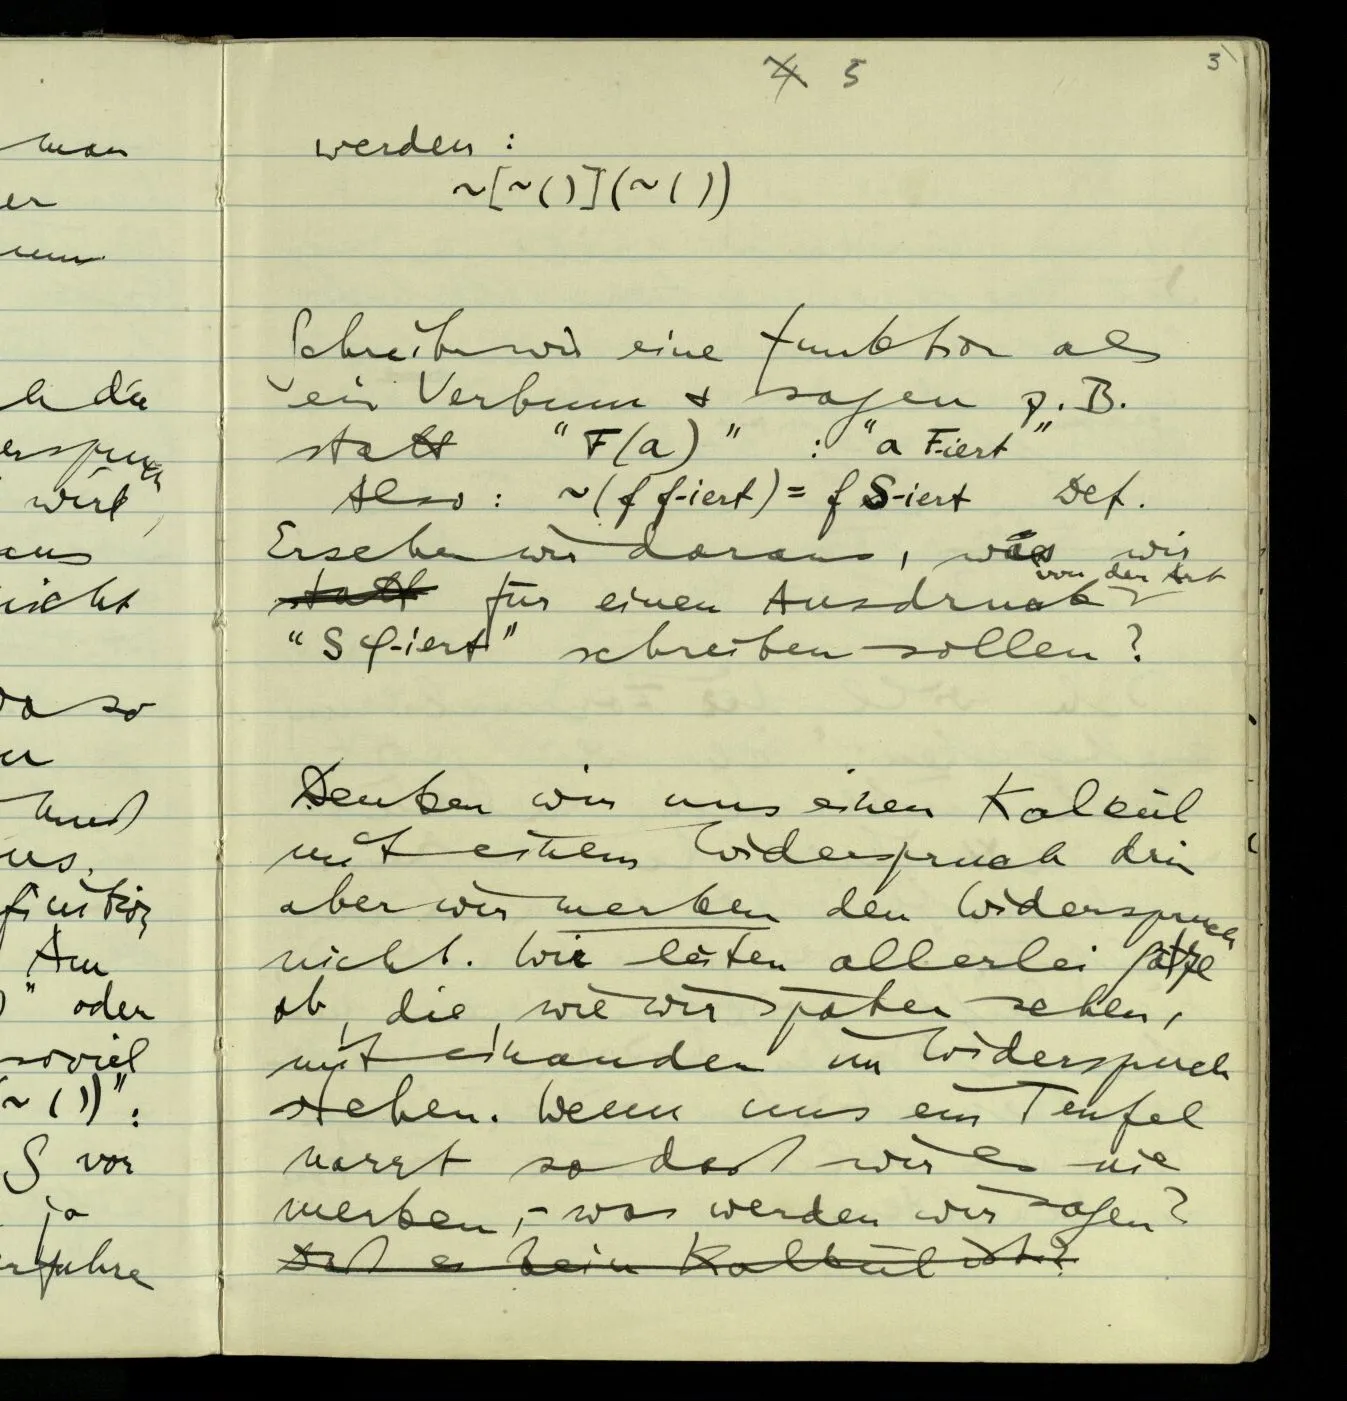 man
er
nun
h die
erspruch
wird",
aus
nicht
da so
er
und
us.
finition
Am
)" oder
soviel
~( ))":
S vor
ja
erfahre
4 5
3
werden :
~[~( )](~( ))
Schreiben wir eine Funktion als
ein Verbum & sagen z. B.
statt "F(a)" : "a F-iert"
Also : ~(f f-iert) = f S-iert Def.
Ersehen wir daraus, was wir
von der Art
statt für einen Ausdruck
"S φ-iert" schreiben sollen ?
Denken wir uns einen Kalkül
mit einem Widerspruch drin
aber wir merken den Widerspruch
nicht. Wir leiten allerlei Sätze
ab, die, wie wir später sehen,
mit einander im Widerspruch
stehen. Wenn uns ein Teufel
narrt so daß wir es nie
merken, – was werden wir sagen?
Daß es kein Kalkül ist?